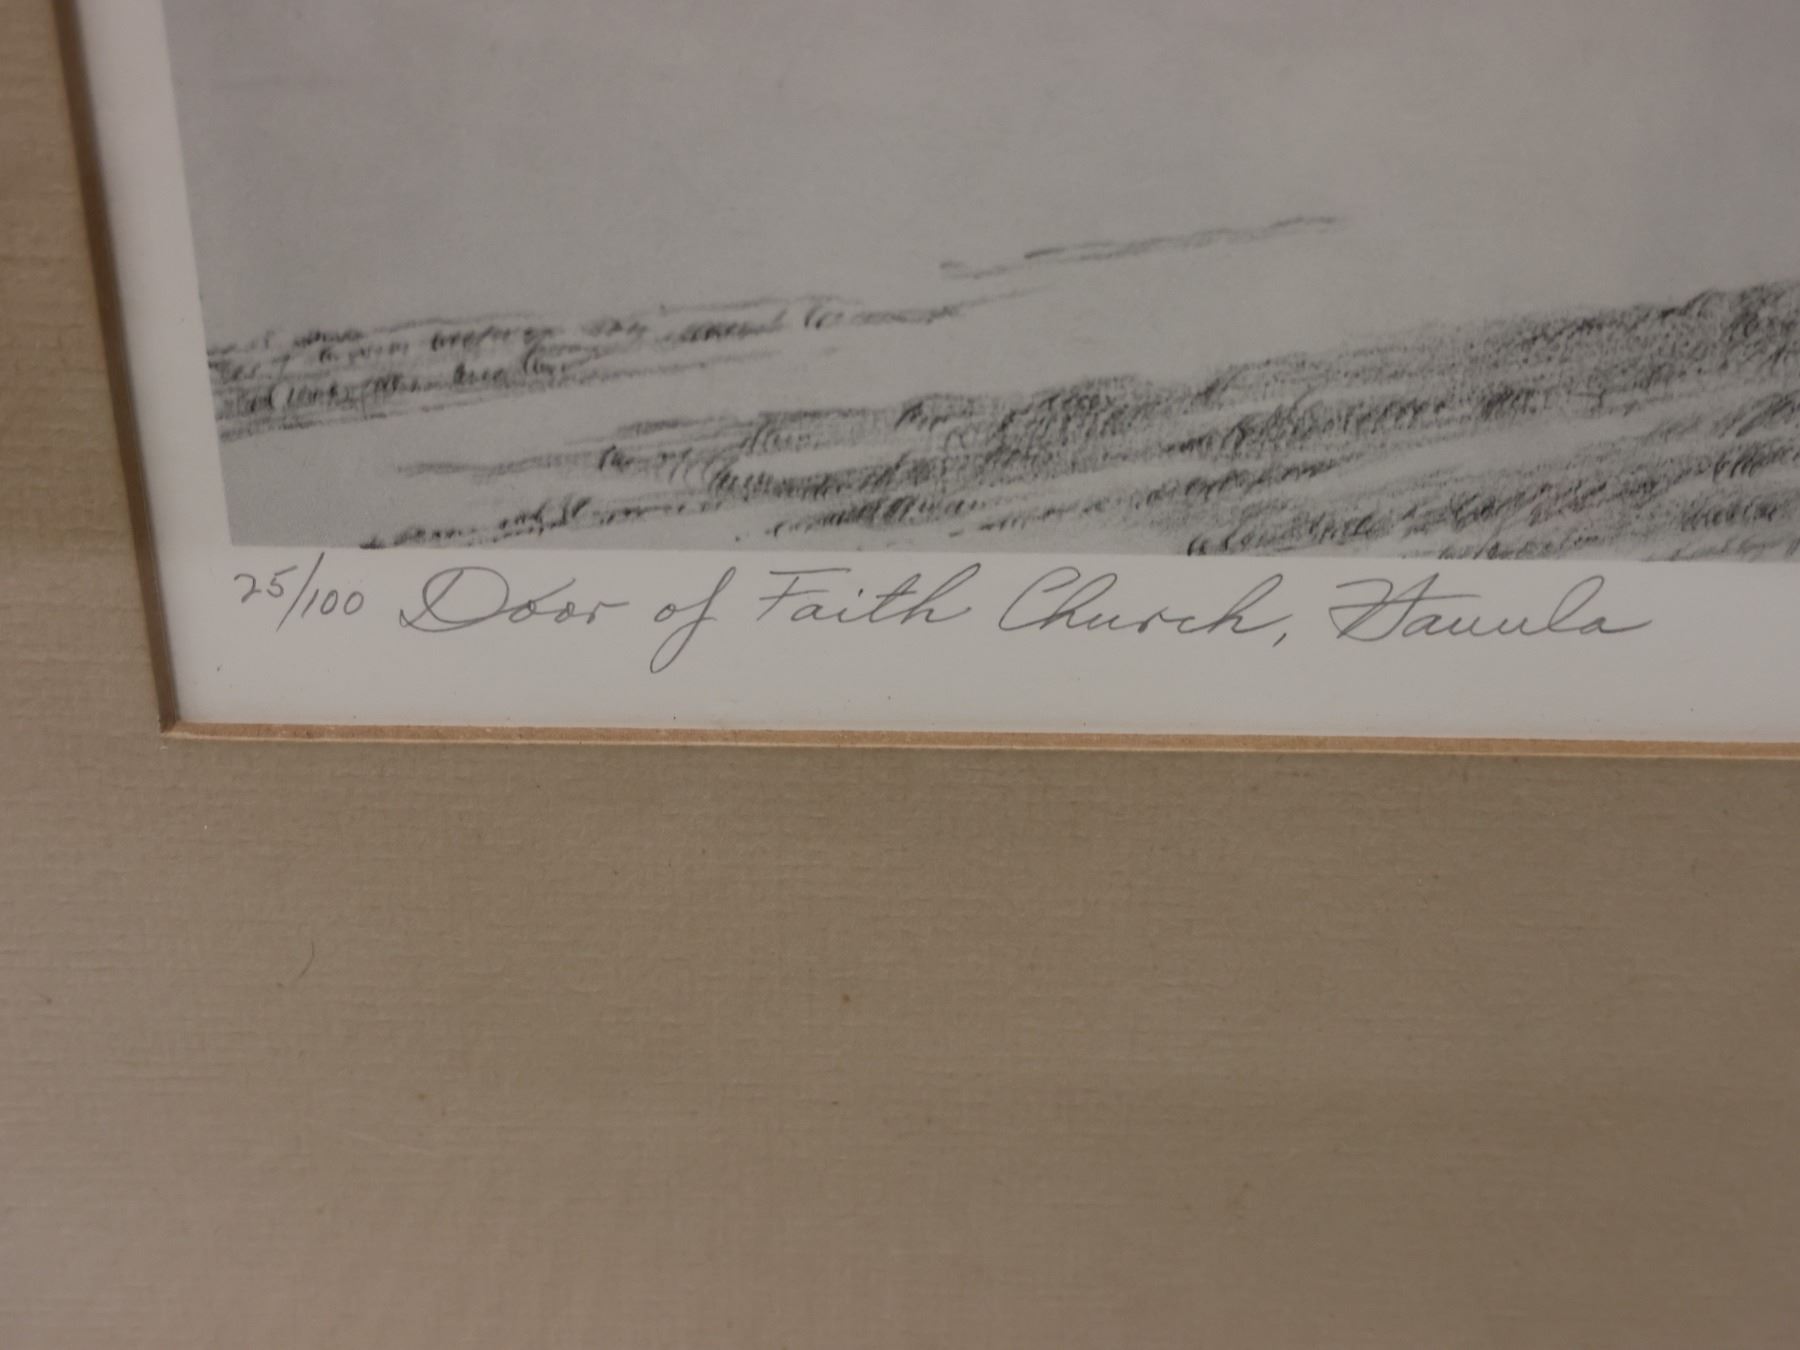 25/100 Door of Faith Church, Hauula